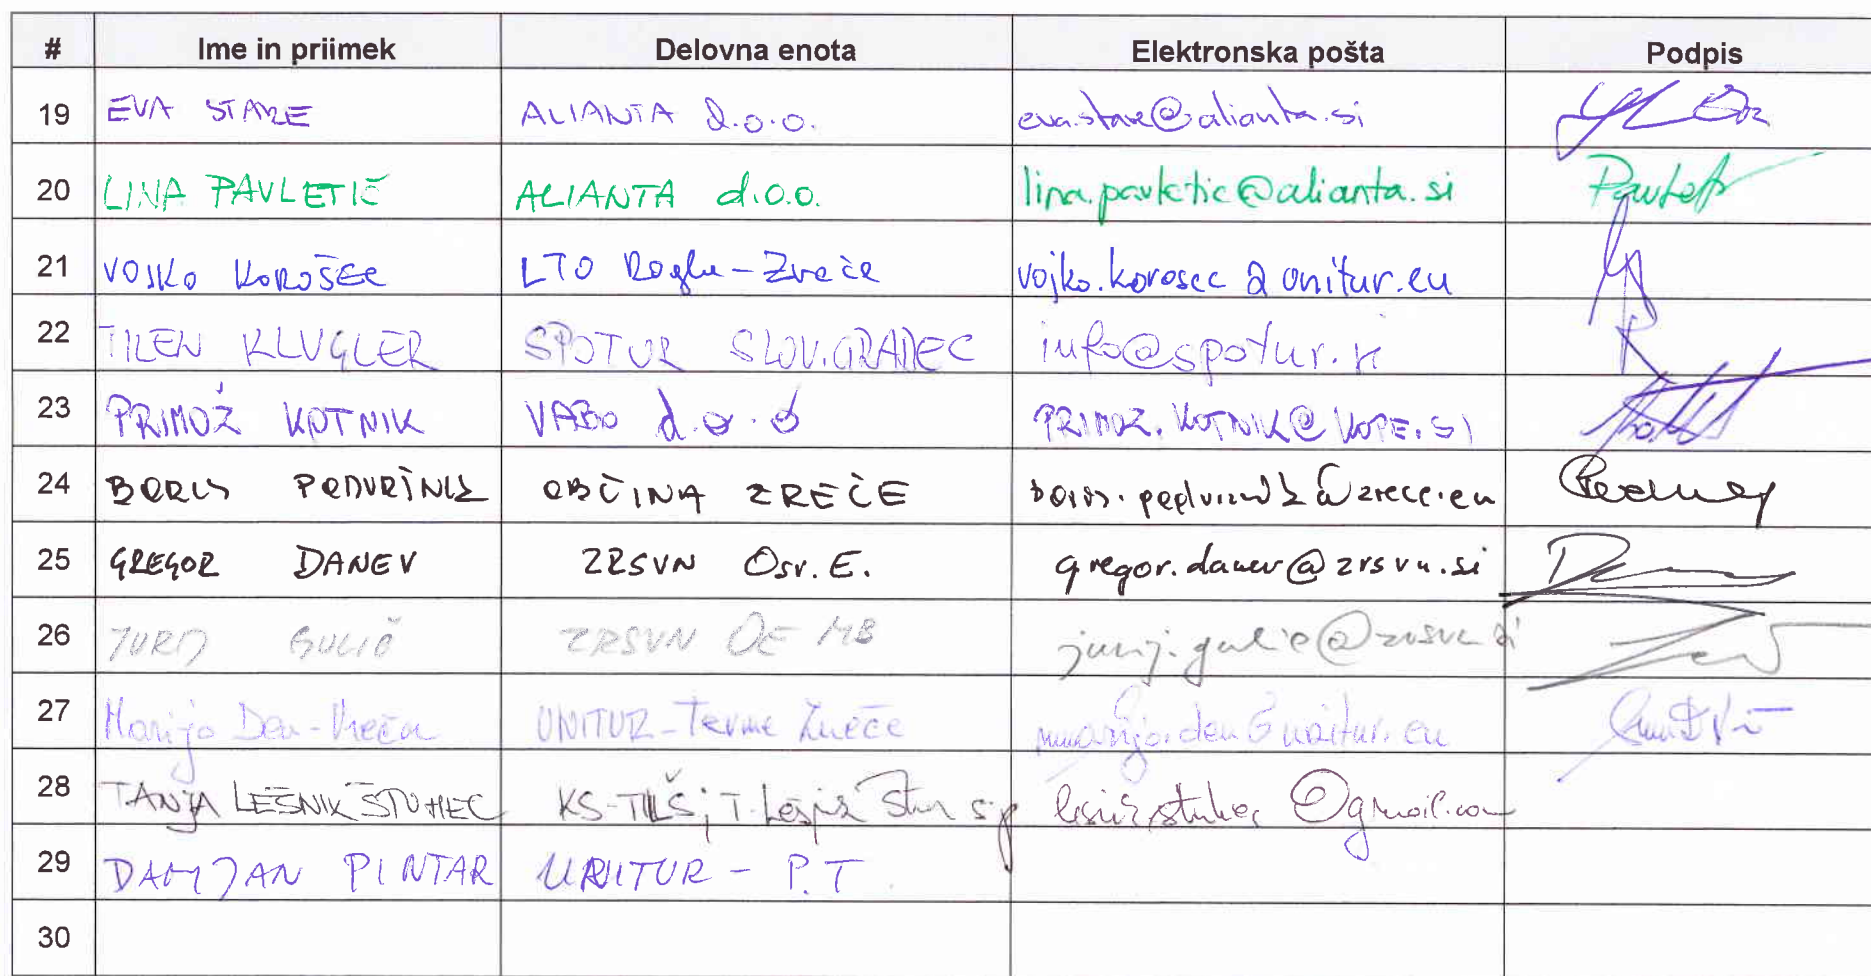 # Ime in priimek Delovna enota Elektronska pošta Podpis
19 EVA STARE ALIANTA d.o.o. eva.stare@alianta.si
20 LINA PAVLETIČ ALIANTA d.o.o. lina.pavletic@alianta.si
21 VOJKO KOROŠEC LTO Rogla-Zreče vojko.korosec@unitur.eu
22 TILEN KLUGLER SPOTUR SLOV.GRADEC info@spotur.si
23 PRIMOŽ KOTNIK VABO d.o.o PRIMOZ.KOTNIK@KOPE.SI
24 BORIS PODVRŠNIK OBČINA ZREČE boris.podvrsnik@zrece.eu
25 GREGOR DANEV ZRSVN Osr. E. gregor.danev@zrsvn.si
26 JURIJ GULIČ ZRSVN OE MB jurij.gulic@zrsvn.si
27 Marija Den-Vreča UNITUR-Terme Zreče marija.den@unitur.eu
28 TANJA LEŠNIK ŠTUHEC KS-TLŠ; T. Lešnik Štu s.p @gmail.com
29 DAMJAN PINTAR UNITUR - P.T
30